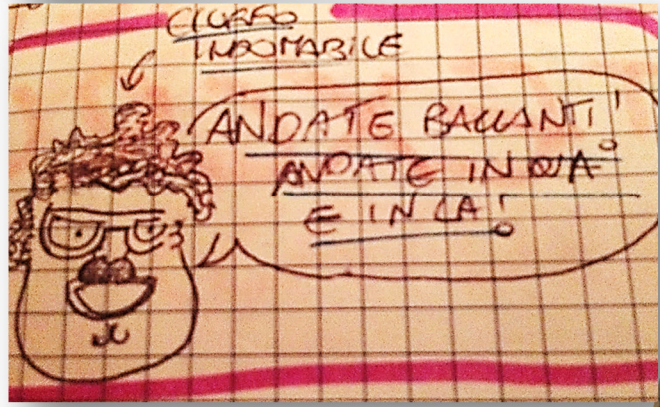 CIUFFO
INDOMABILE
ANDATE BACCANTI!
ANDATE IN QUA
E IN LA!